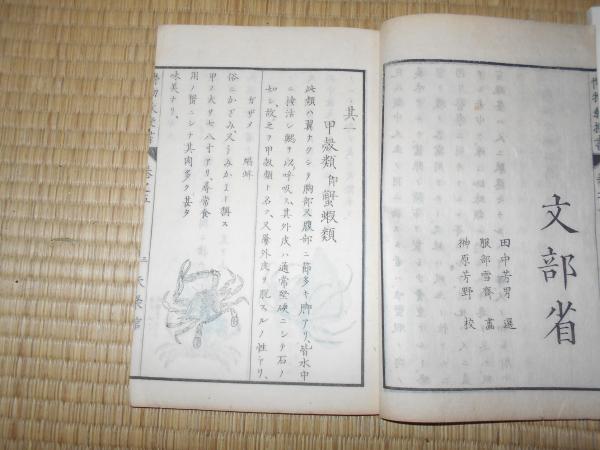 文部省
田中芳男 選
服部雪齋 畫
榊原芳野 校
其一
甲殻類 即蟹蝦類
此類ハ翼ナクシテ胸部又腹部ニ節多キ脚アリ、皆水中
ニ接法シ鰓ヲ以呼吸ス、其外皮ハ通常堅硬ニシテ石ノ
如シ、故之ヲ甲殻類ト名ク、又屡外皮ヲ脱スルノ性アリ、
ガザメ 蝤蛑
俗にかざみ又うみかまト稱ス
甲ノ大サ七八寸アリ、尋常食
用ノ蟹ニシテ其肉多ク甚タ
味美ナリ、